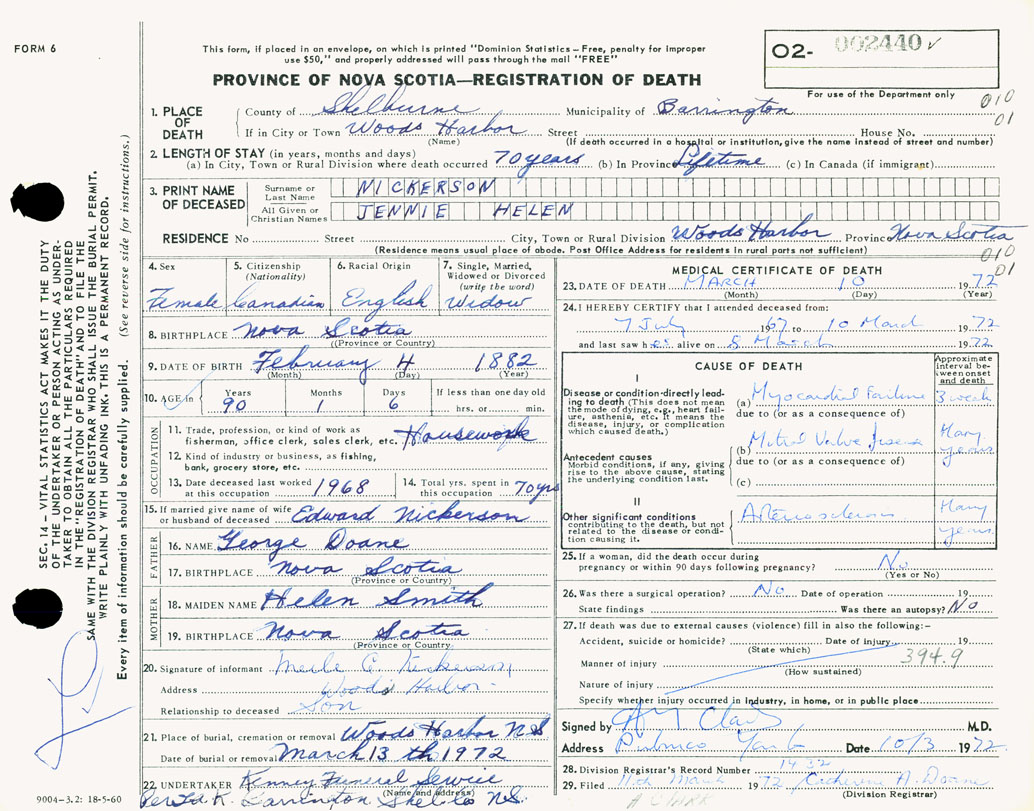 FORM 6
This form, if placed in an envelope, on which is printed "Dominion Statistics – Free, penalty for improper
use $50," and properly addressed will pass through the mail "FREE"
PROVINCE OF NOVA SCOTIA—REGISTRATION OF DEATH
O2- 002440 ✓
For use of the Department only
010
01
1. PLACE OF DEATH
County of Shelburne Municipality of Barrington
If in City or Town Woods Harbor Street House No.
(Name) (If death occurred in a hospital or institution, give the name instead of street and number)
2. LENGTH OF STAY (in years, months and days)
(a) In City, Town or Rural Division where death occurred 70 years (b) In Province Lifetime (c) In Canada (if immigrant)
3. PRINT NAME OF DECEASED
Surname or Last Name NICKERSON
All Given or Christian Names JENNIE HELEN
RESIDENCE No Street City, Town or Rural Division Woods Harbor Province Nova Scotia
(Residence means usual place of abode. Post Office Address for residents in rural parts not sufficient)
010
01
4. Sex Female
5. Citizenship (Nationality) Canadian
6. Racial Origin English
7. Single, Married, Widowed or Divorced (write the word) Widow
8. BIRTHPLACE Nova Scotia
(Province or Country)
9. DATE OF BIRTH February 4 1882
(Month) (Day) (Year)
10. AGE in Years 90 Months 1 Days 6 If less than one day old hrs. or min.
OCCUPATION
11. Trade, profession, or kind of work as fisherman, office clerk, sales clerk, etc. Housework
12. Kind of industry or business, as fishing, bank, grocery store, etc.
13. Date deceased last worked at this occupation 1968
14. Total yrs. spent in this occupation 70 yrs
15. If married give name of wife or husband of deceased Edward Nickerson
FATHER
16. NAME George Doane
17. BIRTHPLACE Nova Scotia
(Province or Country)
MOTHER
18. MAIDEN NAME Helen Smith
19. BIRTHPLACE Nova Scotia
(Province or Country)
20. Signature of informant
Address Woods Harbor
Relationship to deceased Son
21. Place of burial, cremation or removal Woods Harbor N.S
Date of burial or removal March 13 th 1972
22. UNDERTAKER Kenney Funeral Service
(Name and address)
Barrington Shel. Co N.S.
MEDICAL CERTIFICATE OF DEATH
23. DATE OF DEATH MARCH 10 1972
(Month) (Day) (Year)
24. I HEREBY CERTIFY that I attended deceased from:
7 July 1967 to 10 March 1972
and last saw her alive on 8 March 1972
CAUSE OF DEATH
Approximate interval between onset and death
I
Disease or condition directly leading to death (This does not mean the mode of dying, e.g., heart failure, asthenia, etc. It means the disease, injury, or complication which caused death.)
(a) Myocardial Failure 3 week
due to (or as a consequence of)
Antecedent causes
Morbid conditions, if any, giving rise to the above cause, stating the underlying condition last.
(b) Mitral Valve disease Many years
due to (or as a consequence of)
(c)
II
Other significant conditions contributing to the death, but not related to the disease or condition causing it.
Arteriosclerosis Many years
25. If a woman, did the death occur during pregnancy or within 90 days following pregnancy? No
(Yes or No)
26. Was there a surgical operation? No Date of operation 19
State findings Was there an autopsy? No
27. If death was due to external causes (violence) fill in also the following:–
Accident, suicide or homicide? Date of injury 19
(State which)
394.9
Manner of injury
(How sustained)
Nature of injury
Specify whether injury occurred in industry, in home, or in public place
Signed by M.D.
Address Pubnico Date 10/3 1972
28. Division Registrar's Record Number 1432
29. Filed 11th March 1972 Catherine A. Doane
(Division Registrar)
A CLARK
SEC. 14– VITAL STATISTICS ACT MAKES IT THE DUTY
OF THE UNDERTAKER OR PERSON ACTING AS UNDER-
TAKER TO OBTAIN ALL THE PARTICULARS REQUIRED
IN THE "REGISTRATION OF DEATH" AND TO FILE THE
SAME WITH THE DIVISION REGISTRAR WHO SHALL ISSUE THE BURIAL PERMIT.
WRITE PLAINLY WITH UNFADING INK. THIS IS A PERMANENT RECORD.
Every item of information should be carefully supplied. (See reverse side for instructions.)
9004–3.2: 18-5-60